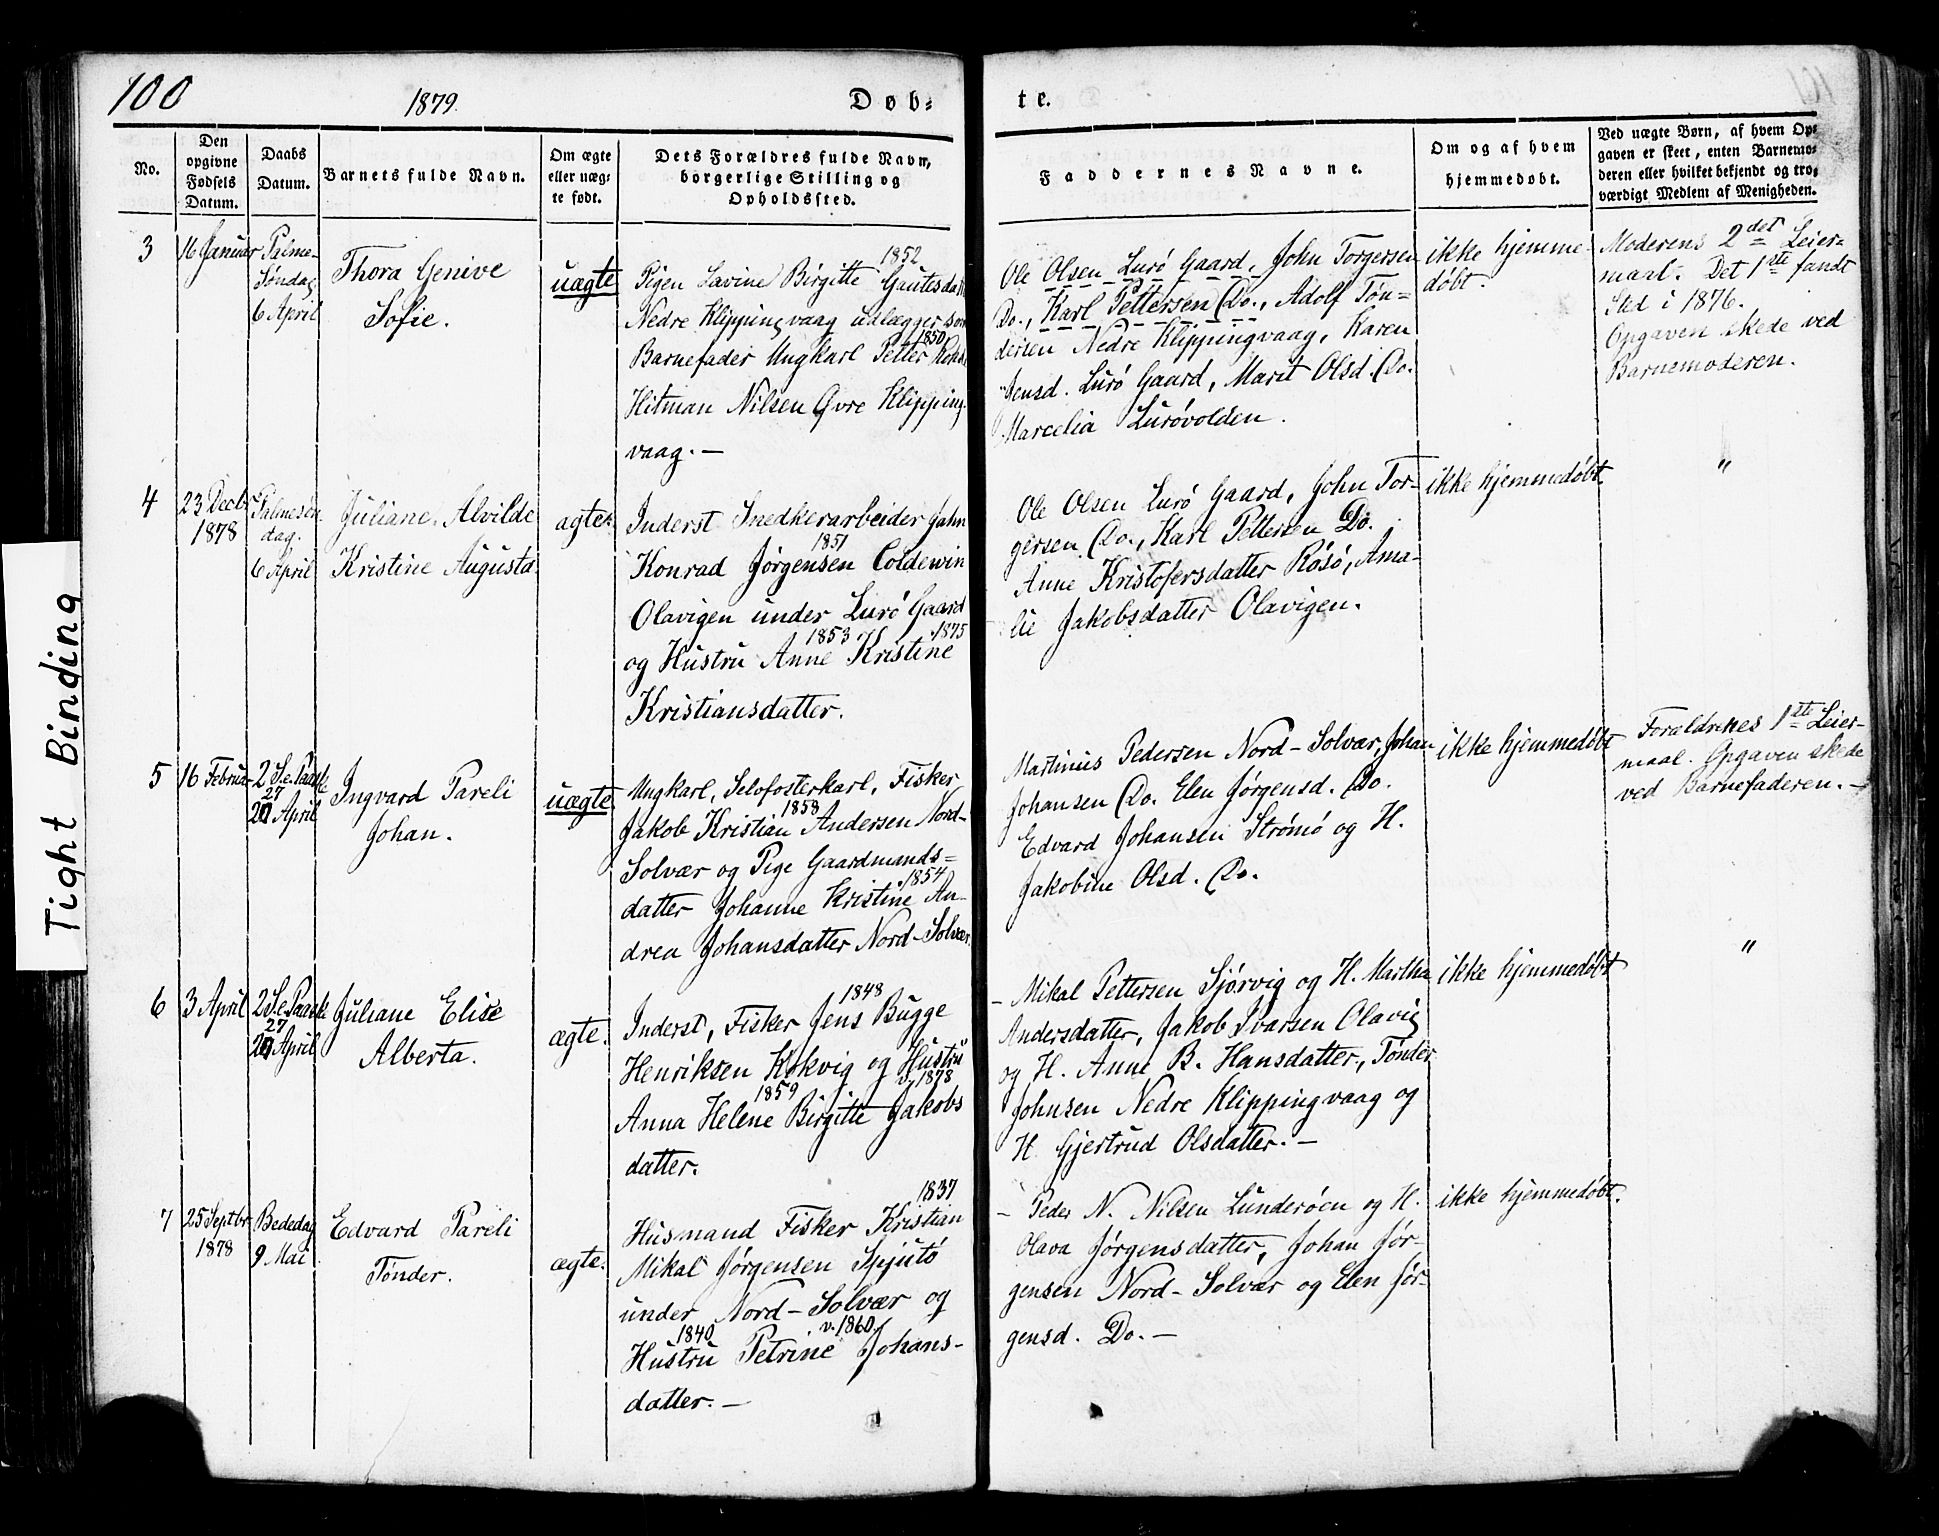 100
1879.
Døb=
te.
No.
Den opgivne Fødsels Datum.
Daabs Datum.
Barnets fulde Navn.
Om ægte eller uæg= te født.
Dets Forældres fulde Navn, borgerlige Stilling og Opholdssted.
Faddernes Navne.
Om og af hvem hjemmedøbt.
Ved uægte Børn, af hvem Op= gaven er skeet, enten Barnemo= deren eller hvilket bekjendt og tro= værdigt Medlem af Menigheden.
3
16 Januar
Palme-
Søndag
6 April
Thora Genive
Sofie.
uægte
1852
Pigen Lavine Birgitte Gautesda
Nedre Klippingvaag udlægger som
1850
Barnefader Ungkarl Petter
Hitman Nilsen Øvre Klipping
vaag. —
Ole Olsen Lurø Gaard, John Torgersen
Do., Karl Pettersen Do., Adolf Tøn=
dersen Nedre Klippingvaag, Karen
Jensd. Lurø Gaard, Marit Olsd. Do.
Marcelia Lurøvolden.
ikke hjemme-
døbt.
Moderens 2det Leier-
maal. Det 1ste fandt
Sted i 1876.
Opgaven skede ved
Barnemoderen.
4
23 Decbr
1878
Palmesøn
dag.
6 April
Juliane Alvilde
Kristine Augusta.
ægte.
Inderst Snedkerarbeider Jahn
1851
Konrad Jørgensen Coldewin
Olavigen under Lurø Gaard
1853 1875
og Hustru Anne Kristine
Kristiansdatter.
Ole Olsen Lurø Gaard, John Tor-
gersen Do., Karl Pettersen Do.
Anne Kristofersdatter Røsø, Ama-
lie Jakobsdatter Olavigen.
ikke hjemmedøbt.
"
5
16 Februar
2 S.e. Paaske
27
April
Ingvard Pareli
Johan.
uægte
Ungkarl, Selvfosterkarl, Fisker
1858
Jakob Kristian Andersen Nord-
Solvær og Pige Gaardmands=
1854
datter Johanne Kristine An-
drea Johansdatter Nord-Solvær.
Martinus Pedersen Nord-Solvær, Johan
Johansen Do. Elen Jørgensd. Do.
Edvard Johansen Strømø og H.
Jakobine Olsd. Do.
ikke hjemmedøbt
Forældrenes 1ste Leier-
maal. Opgaven skede
ved Barnefaderen. —
6
3 April
2 S.e. Paaske
27
April
Juliane Elise
Alberta.
ægte.
1848
Inderst, Fisker Jens Bugge
Henriksen Kokvig og Hustru
1859 v. 1878
Anna Helene Birgitte Jakobs
datter.
- Mikal Pettersen Sjørvig og H. Martha
Andersdatter, Jakob Ivarsen Olavig
og H. Anne B. Hansdatter, Tønder
Johnsen Nedre Klippingvaag og
H. Gjertrud Olsdatter. —
ikke hjemmedøbt
"
7
25 Septbr
1878
Bededag
9 Mai
Edvard Pareli
Tønder.
ægte.
1837
Husmand Fisker Kristian
Mikal Jørgensen Spjutø
under Nord-Solvær og
1840 v. 1860
Hustru Petrine Johans-
datter. —
- Peder N. Nilsen Lunderøen og H.
Olava Jørgensdatter, Johan Jør-
gensen Nord-Solvær og Elen Jør-
gensd. Do. —
ikke hjemmedøbt.
Tight Binding